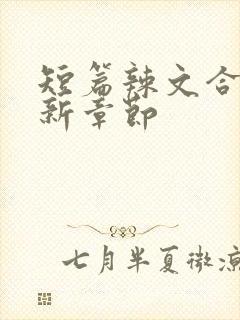 短篇辣文合
新章节
七月半夏微凉